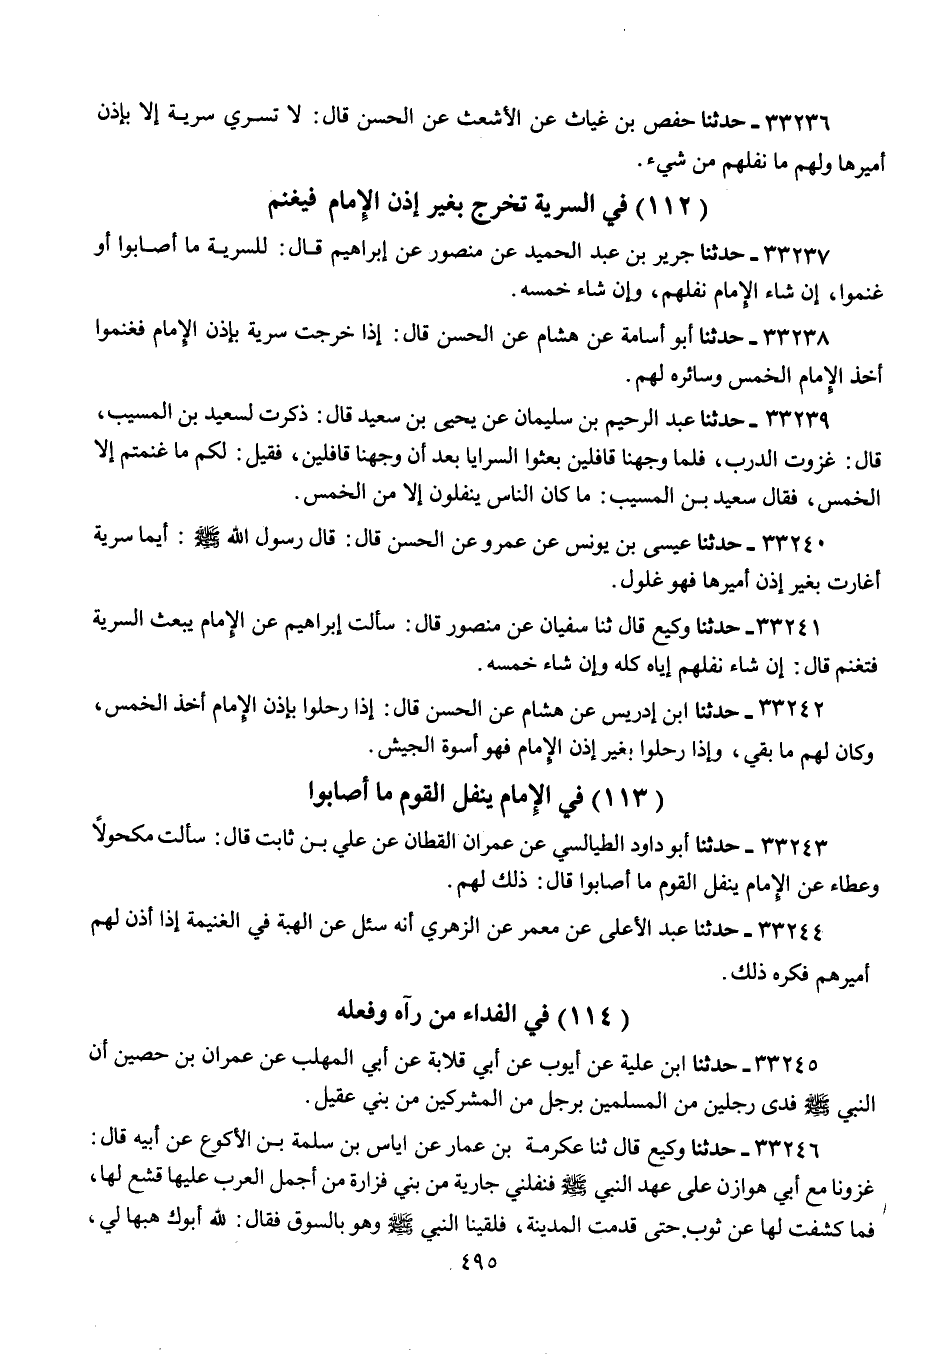 ٣٣٢٣٦ - حدثنا حفص بن غياث عن الأشعث عن الحسن قال: لا تسري سرية إلا بإذن
أميرها ولهم ما نفلهم من شيء.
(١١٢) في السرية تخرج بغير إذن الإمام فيغنم
٣٣٢٣٧ - حدثنا جرير بن عبد الحميد عن منصور عن إبراهيم قال: للسرية ما أصابوا أو
غنموا، إن شاء الإمام نفلهم، وإن شاء خمسه.
٣٣٢٣٨ - حدثنا أبو أسامة عن هشام عن الحسن قال: إذا خرجت سرية بإذن الإمام فغنموا
أخذ الإمام الخمس وسائره لهم.
٣٣٢٣٩ - حدثنا عبد الرحيم بن سليمان عن يحيى بن سعيد قال: ذكرت لسعيد بن المسيب،
قال: غزوت الدرب، فلما وجهنا قافلين بعثوا السرايا بعد أن وجهنا قافلين، فقيل: لكم ما غنمتم إلا
الخمس، فقال سعيد بن المسيب: ما كان الناس ينفلون إلا من الخمس.
٣٣٢٤٠ - حدثنا عيسى بن يونس عن عمرو عن الحسن قال: قال رسول الله ﷺ : أيما سرية
أغارت بغير إذن أميرها فهو غلول.
٣٣٢٤١ - حدثنا وكيع قال ثنا سفيان عن منصور قال: سألت إبراهيم عن الإمام يبعث السرية
فتغنم قال: إن شاء نفلهم إياه كله وإن شاء خمسه.
٣٣٢٤٢ - حدثنا ابن إدريس عن هشام عن الحسن قال: إذا رحلوا بإذن الإمام أخذ الخمس،
وكان لهم ما بقي، وإذا رحلوا بغير إذن الإمام فهو أسوة الجيش.
(١١٣) في الإمام ينفل القوم ما أصابوا
٣٣٢٤٣ - حدثنا أبو داود الطيالسي عن عمران القطان عن علي بن ثابت قال: سألت مكحولاً
وعطاء عن الإمام ينفل القوم ما أصابوا قال: ذلك لهم.
٣٣٢٤٤ - حدثنا عبد الأعلى عن معمر عن الزهري أنه سئل عن الهبة في الغنيمة إذا أذن لهم
أميرهم فكره ذلك.
(١١٤) في الفداء من رآه وفعله
٣٣٢٤٥ - حدثنا ابن علية عن أيوب عن أبي قلابة عن أبي المهلب عن عمران بن حصين أن
النبي ﷺ فدى رجلين من المسلمين برجل من المشركين من بني عقيل.
٣٣٢٤٦ - حدثنا وكيع قال ثنا عكرمة بن عمار عن اياس بن سلمة بن الأكوع عن أبيه قال:
غزونا مع أبي هوازن على عهد النبي ﷺ فنفلني جارية من بني فزارة من أجمل العرب عليها قشع لها،
فما كشفت لها عن ثوب حتى قدمت المدينة، فلقينا النبي ﷺ وهو بالسوق فقال: لله أبوك هبها لي،
٤٩٥